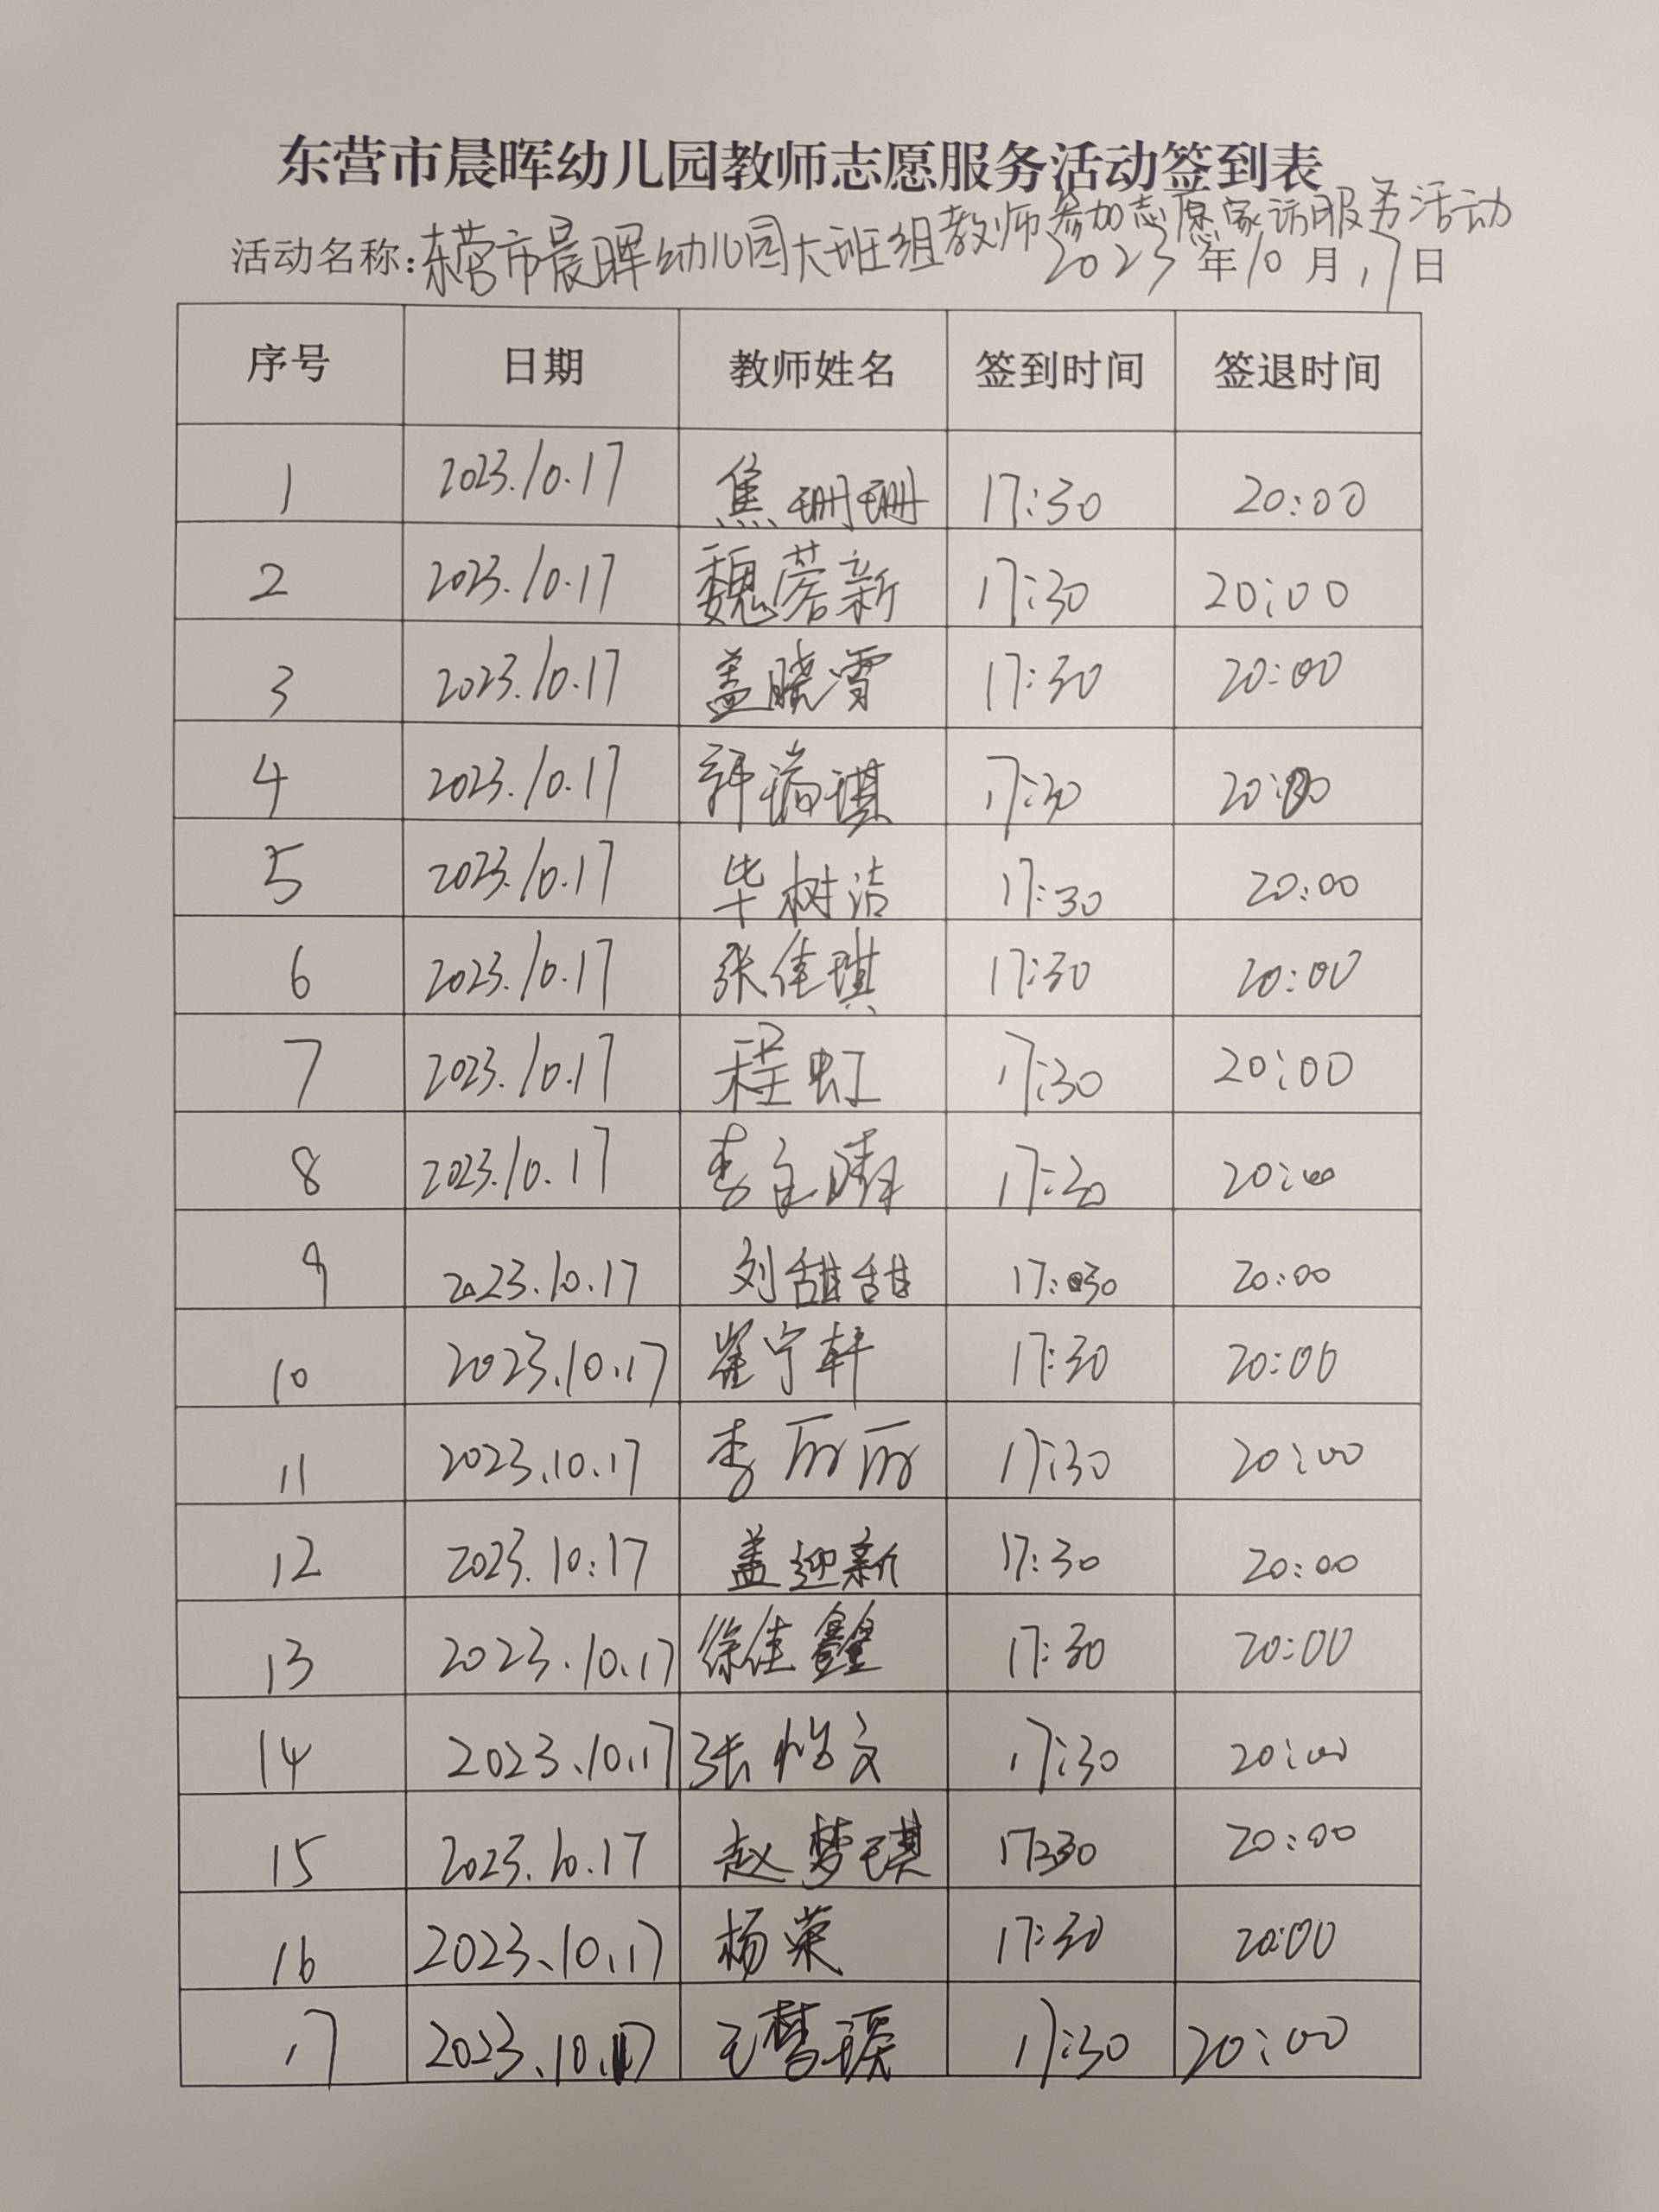 东营市晨晖幼儿园教师志愿服务活动签到表
活动名称:东营市晨晖幼儿园大班组教师参加志愿家访服务活动
2023年10月17日
序号 日期 教师姓名 签到时间 签退时间
1 2023.10.17 焦珊珊 17:30 20:00
2 2023.10.17 魏蓉新 17:30 20:00
3 2023.10.17 盖晓雪 17:30 20:00
4 2023.10.17 韩瑞琪 17:30 20:00
5 2023.10.17 毕树洁 17:30 20:00
6 2023.10.17 张佳琪 17:30 20:00
7 2023.10.17 程虹 17:30 20:00
8 2023.10.17 李 晴 17:30 20:00
9 2023.10.17 刘甜甜 17:30 20:00
10 2023.10.17 崔宁轩 17:30 20:00
11 2023.10.17 李丽丽 17:30 20:00
12 2023.10.17 盖迎新 17:30 20:00
13 2023.10.17 徐佳鑫 17:30 20:00
14 2023.10.17 张怡文 17:30 20:00
15 2023.10.17 赵梦琪 17:30 20:00
16 2023.10.17 杨荣 17:30 20:00
17 2023.10.17 王梦瑗 17:30 20:00